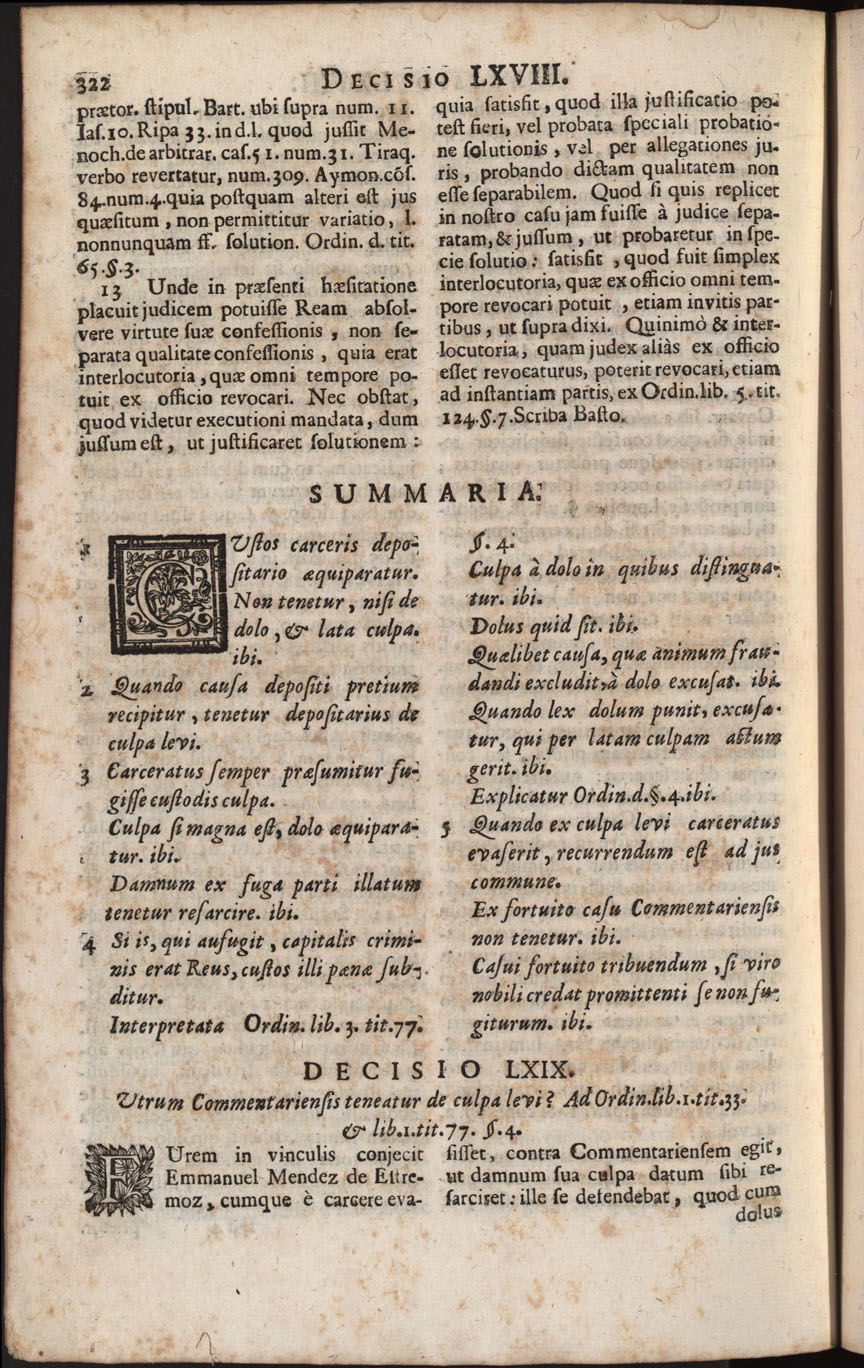 322
DECISIO LXVIII.
prætor. stipul. Bart. ubi supra num. 11.
Ias. 10. Ripa 33. in d. l. quod jussit Me-
noch. de arbitrar. cas. 51. num. 31. Tiraq.
verbo revertatur, num. 309. Aymon. cõs.
84. num. 4. quia postquam alteri est jus
quæsitum, non permittitur variatio, l.
nonnunquam ff. solution. Ordin. d. tit.
65. §. 3.
13 Unde in præsenti hæsitatione
placuit judicem potuisse Ream absol-
vere virtute suæ confessionis, non se-
parata qualitate confessionis, quia erat
interlocutoria, quæ omni tempore po-
tuit ex officio revocari. Nec obstat,
quod videtur executioni mandata, dum
jussum est, ut justificaret solutionem:
quia satisfit, quod illa justificatio po-
test fieri, vel probata speciali probatio-
ne solutionis, vel per allegationes ju-
ris, probando dictam qualitatem non
esse separabilem. Quod si quis replicet
in nostro casu jam fuisse à judice sepa-
ratam, & jussum, ut probaretur in spe-
cie solutio: satisfit, quod fuit simplex
interlocutoria, quæ ex officio omni tem-
pore revocari potuit, etiam invitis par-
tibus, ut supra dixi. Quinimò & inter-
locutoria, quam judex aliàs ex officio
esset revocaturus, poterit revocari, etiam
ad instantiam partis, ex Ordin. lib. 5. tit.
124. §. 7. Scriba Basto.
SUMMARIA.
1 CUstos carceris depo-
sitario æquiparatur.
Non tenetur, nisi de
dolo, & lata culpa.
ibi.
2 Quando causa depositi pretium
recipitur, tenetur depositarius de
culpa levi.
3 Carceratus semper præsumitur fu-
gisse custodis culpa.
Culpa si magna est, dolo æquipara-
tur. ibi.
Damnum ex fuga parti illatum
tenetur resarcire. ibi.
4 Si is, qui aufugit, capitalis crimi-
nis erat Reus, custos illi pænæ sub-
ditur.
Interpretata Ordin. lib. 3. tit. 77.
§. 4.
Culpa à dolo in quibus distingua-
tur. ibi.
Dolus quid sit. ibi.
Quælibet causa, quæ animum frau-
dandi excludit, à dolo excusat. ibi.
Quando lex dolum punit, excusa-
tur, qui per latam culpam actum
gerit. ibi.
Explicatur Ordin. d. §. 4. ibi.
5 Quando ex culpa levi carceratus
evaserit, recurrendum est ad jus
commune.
Ex fortuito casu Commentariensis
non tenetur. ibi.
Casui fortuito tribuendum, si viro
nobili credat promittenti se non fu-
giturum. ibi.
DECISIO LXIX.
Utrum Commentariensis teneatur de culpa levi? Ad Ordin. lib. 1. tit. 33.
& lib. 1. tit. 77. §. 4.
FUrem in vinculis conjecit
Emmanuel Mendez de Estre-
moz, cumque è carcere eva-
sisset, contra Commentariensem egit,
ut damnum sua culpa datum sibi re-
sarciret: ille se defendebat, quod cum
dolus